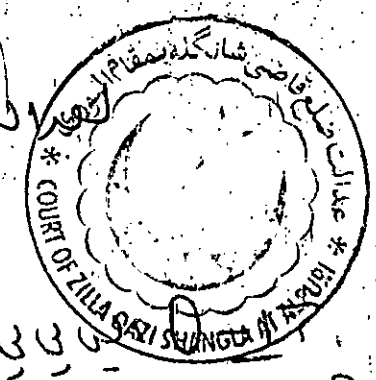 عدالت ضلع قاضی شانگلہ بمقام الپوری
* COURT OF ZILLA QAZI SHANGLA AT ALPURI *